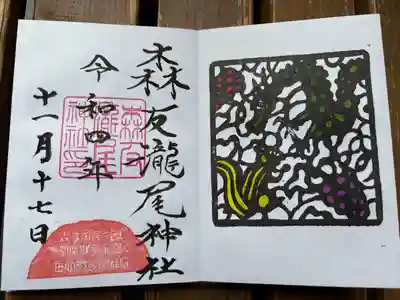 森友瀧尾神社
令和四年
十一月十七日
森友
瀧尾
神社印